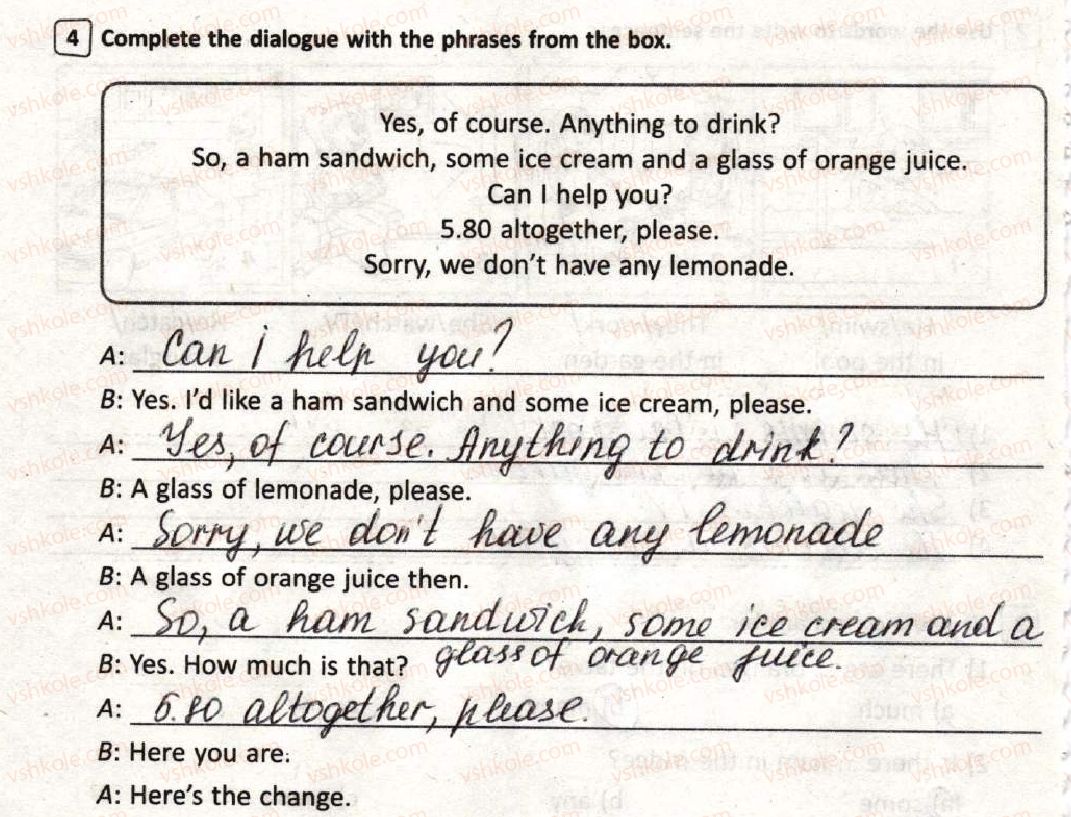 4 Complete the dialogue with the phrases from the box.
Yes, of course. Anything to drink?
So, a ham sandwich, some ice cream and a glass of orange juice.
Can I help you?
5.80 altogether, please.
Sorry, we don't have any lemonade.
A: Can i help you?
B: Yes. I'd like a ham sandwich and some ice cream, please.
A: Yes, of course. Anything to drink?
B: A glass of lemonade, please.
A: Sorry, we don't have any lemonade
B: A glass of orange juice then.
A: So, a ham sandwich, some ice cream and a
glass of orange juice.
B: Yes. How much is that?
A: 5.80 altogether, please.
B: Here you are.
A: Here's the change.
vshkole.com